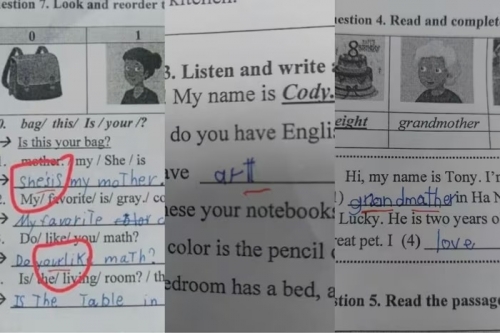 estion 7. Look and reorder t
0 1
0. bag/ this/ Is / your /?
→ Is this your bag?
mother. / my / She / is
→ she'sis my mother.
2. My/ favorite/ is/ gray./ co
→ My favorite color c
Do/ like/ you/ math?
→ Do yourlik math?
Is/ the/ living/ room? / th
→ Is The Table in
kitchen.
3. Listen and write a
My name is Cody.
do you have Engli
ave art
ese your notebook
color is the pencil
edroom has a bed, a
estion 4. Read and complet
HAPPY BIRTHDAY
eight grandmother
Hi, my name is Tony. I'm
) grandmather in Ha N
Lucky. He is two years o
reat pet. I (4) love
stion 5. Read the passage